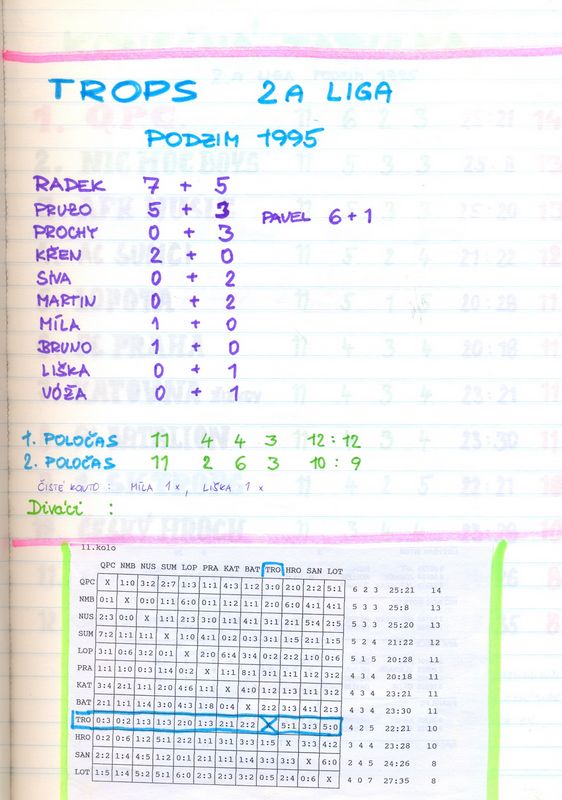 TROPS 2A LIGA
PODZIM 1995
RADEK 7 + 5
PRUŽO 5 + 3 PAVEL 6 + 1
PROCHY 0 + 3
KŘEN 2 + 0
SIVA 0 + 2
MARTIN 0 + 2
MÍLA 1 + 0
BRUNO 1 + 0
LIŠKA 0 + 1
VÓŽA 0 + 1
1. POLOČAS 11 4 4 3 12:12
2. POLOČAS 11 2 6 3 10:9
ČISTÉ KONTO : MÍLA 1x, LIŠKA 1x
Diváci :
11.kolo
QPC NMB NUS SUM LOP PRA KAT BAT TRO HRO SAN LOT
QPC X 1:0 3:2 2:7 1:3 1:1 4:3 1:2 3:0 2:0 2:2 5:1 6 2 3 25:21 14
NMB 0:1 X 0:0 1:1 6:0 0:1 1:2 1:1 2:0 6:0 4:1 4:1 5 3 3 25:8 13
NUS 2:3 0:0 X 1:1 2:3 3:0 1:1 4:1 3:1 2:1 5:4 2:5 5 3 3 25:20 13
SUM 7:2 1:1 1:1 X 1:0 4:1 0:2 0:3 3:1 1:5 2:1 1:5 5 2 4 21:22 12
LOP 3:1 0:6 3:2 0:1 X 2:0 6:4 3:4 0:2 2:2 1:0 0:6 5 1 5 20:28 11
PRA 1:1 1:0 0:3 1:4 0:2 X 1:1 8:1 3:1 1:1 1:2 3:2 4 3 4 20:18 11
KAT 3:4 2:1 1:1 2:0 4:6 1:1 X 4:0 1:2 1:3 1:1 3:2 4 3 4 23:21 11
BAT 2:1 1:1 1:4 3:0 4:3 1:8 0:4 X 2:2 3:3 4:1 2:3 4 3 4 23:30 11
TRO 0:3 0:2 1:3 1:3 2:0 1:3 2:1 2:2 X 5:1 3:3 5:0 4 2 5 22:21 10
HRO 0:2 0:6 1:2 5:1 2:2 1:1 3:1 3:3 1:5 X 3:3 4:2 3 4 4 23:28 10
SAN 2:2 1:4 4:5 1:2 0:1 2:1 1:1 1:4 3:3 3:3 X 6:0 2 4 5 24:26 8
LOT 1:5 1:4 5:2 5:1 6:0 2:3 2:3 3:2 0:5 2:4 0:6 X 4 0 7 27:35 8